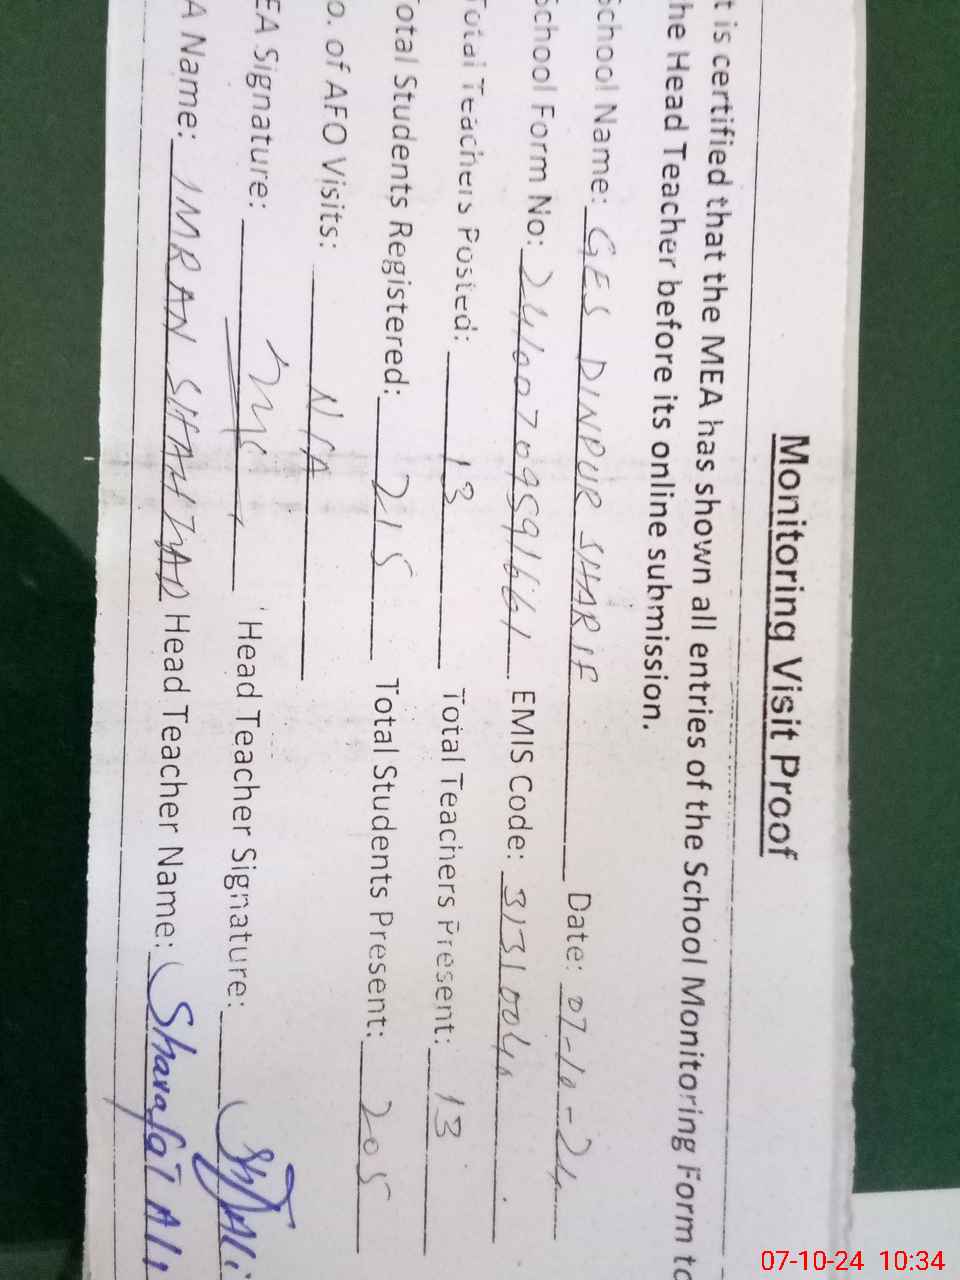 Monitoring Visit Proof
t is certified that the MEA has shown all entries of the School Monitoring Form to
he Head Teacher before its online submission.
School Name: GES DINPUR SHARIF Date: 07-10-24
School Form No: 24100709591661 EMIS Code: 31310040
Total Teachers Posted: 13 Total Teachers Present: 13
otal Students Registered: 215 Total Students Present: 205
o. of AFO Visits: N/A
EA Signature: Head Teacher Signature: Sh Ali
A Name: IMRAN SHAHZAD Head Teacher Name: Sharafat Ali
07-10-24 10:34